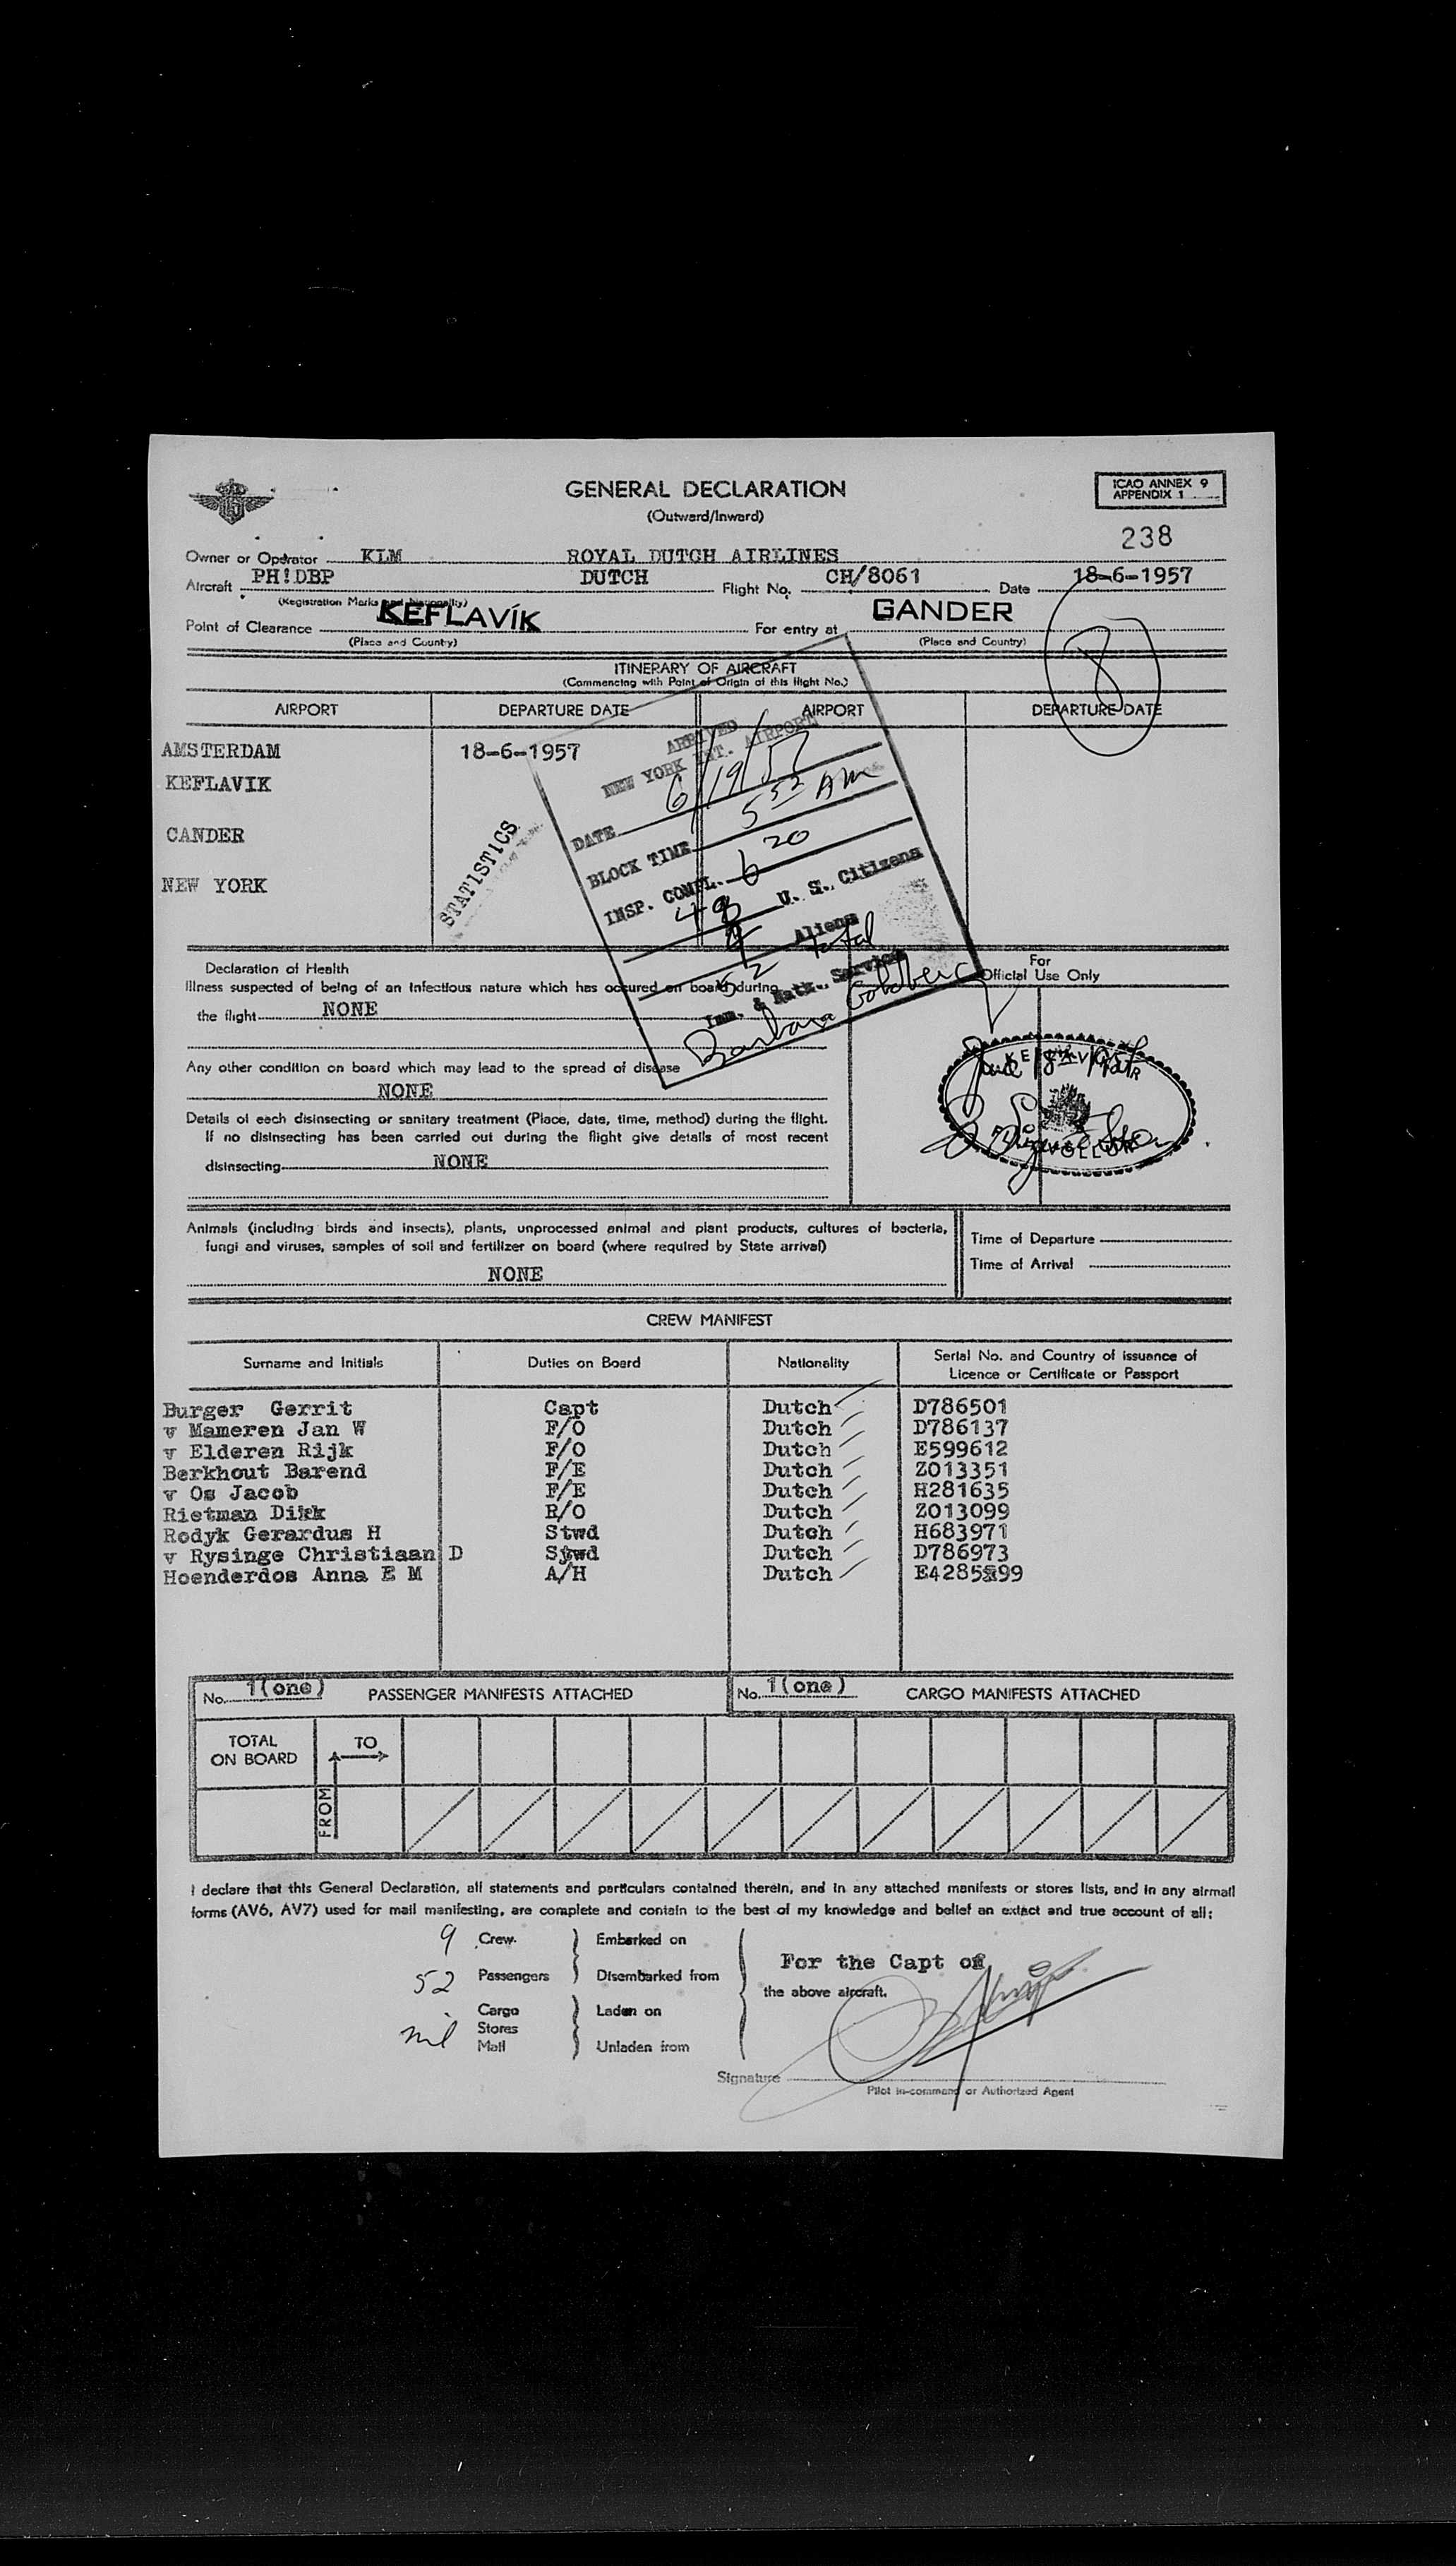 GENERAL DECLARATION
(Outward/Inward)
ICAO ANNEX 9
APPENDIX 1
238
Owner or Operator KLM ROYAL DUTCH AIRLINES
Aircraft PH!DBP DUTCH Flight No. CH/8061 Date 18-6-1957
(Registration Marks and Nationality)
Point of Clearance KEFLAVÍK For entry at GANDER
(Place and Country) (Place and Country)
8
ITINERARY OF AIRCRAFT
(Commencing with Point of Origin of this flight No.)
AIRPORT DEPARTURE DATE AIRPORT DEPARTURE DATE
AMSTERDAM 18-6-1957
KEFLAVIK
CANDER
NEW YORK
STATISTICS
ARRIVED
NEW YORK INT. AIRPORT
DATE 6/19/57
BLOCK TIME 5 52 AM
INSP. COMPL. 6 20
48 U. S. Citizens
4 Aliens
52 total
Imm. & Natz. Service
Barbara Goldberg
Declaration of Health
For
Official Use Only
Illness suspected of being of an infectious nature which has occured on board during
the flight NONE
Any other condition on board which may lead to the spread of disease
NONE
Details of each disinsecting or sanitary treatment (Place, date, time, method) during the flight.
If no disinsecting has been carried out during the flight give details of most recent
disinsecting NONE
Animals (including birds and insects), plants, unprocessed animal and plant products, cultures of bacteria,
fungi and viruses, samples of soil and fertilizer on board (where required by State arrival)
NONE
Time of Departure
Time of Arrival
CREW MANIFEST
Surname and Initials Duties on Board Nationality Serial No. and Country of issuance of
Licence or Certificate or Passport
Burger Gerrit Capt Dutch D786501
v Mameren Jan W F/O Dutch D786137
v Elderen Rijk F/O Dutch E599612
Berkhout Barend F/E Dutch Z013351
v Os Jacob F/E Dutch H281635
Rietman Dirk R/O Dutch Z013099
Rodyk Gerardus H Stwd Dutch H683971
v Rysinge Christiaan D Stwd Dutch D786973
Hoenderdos Anna E M A/H Dutch E4285899
No. 1(one) PASSENGER MANIFESTS ATTACHED No. 1(one) CARGO MANIFESTS ATTACHED
TOTAL
ON BOARD
TO
FROM
I declare that this General Declaration, all statements and particulars contained therein, and in any attached manifests or stores lists, and in any airmail
forms (AV6, AV7) used for mail manifesting, are complete and contain to the best of my knowledge and belief an extact and true account of all:
9 Crew. Embarked on
52 Passengers Disembarked from
For the Capt of
the above aircraft.
Cargo Laden on
nil Stores
Mail Unladen from
Signature
Pilot in-command or Authorized Agent